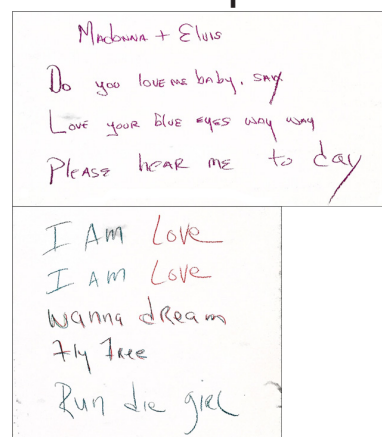 Madonna + Elvis
Do you love me baby. say
Love your blue eyes way way
Please hear me to day
I Am Love
I Am Love
wanna dream
Fly Free
Run die girl